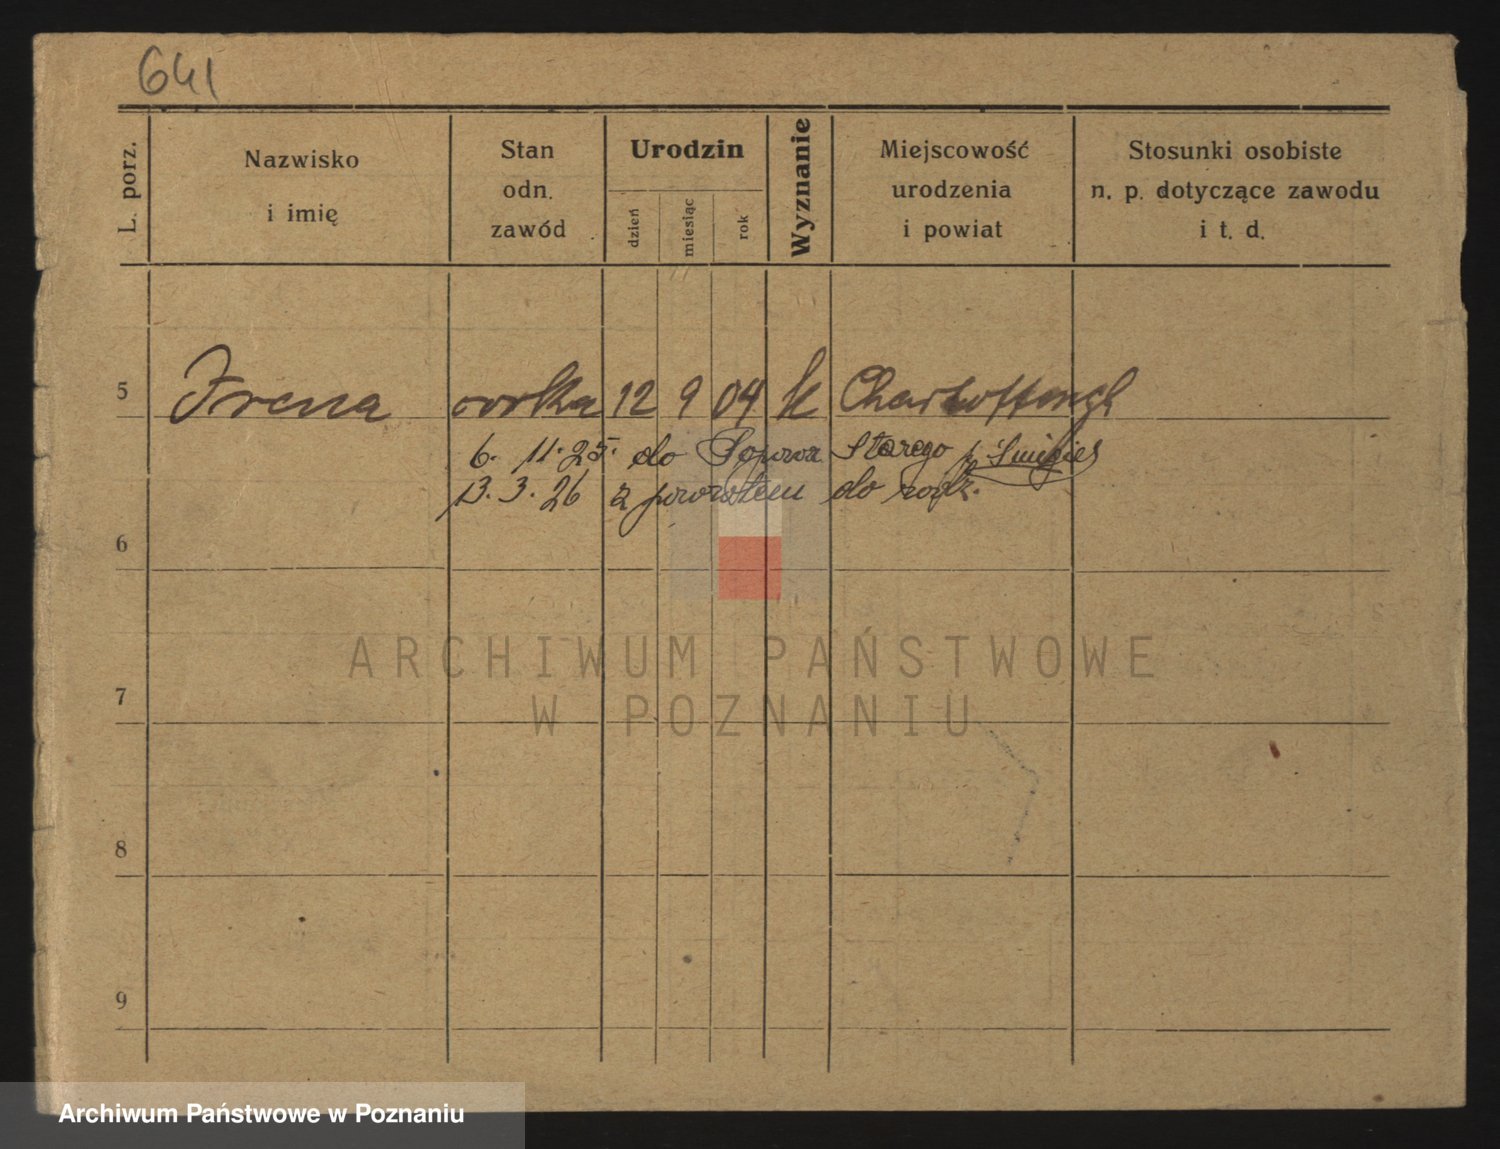 641
L. porz.
Nazwisko
i imię
Stan
odn.
zawód
Urodzin
dzień
miesiąc
rok
Wyznanie
Miejscowość
urodzenia
i powiat
Stosunki osobiste
n. p. dotyczące zawodu
i t. d.
5 Irena córka 12 9 04 k
6. 11. 25. do Popowa Starego p. Śmigiel
13. 3. 26 z powrotem do rodz.
6
7
8
9
ARCHIWUM PAŃSTWOWE
W POZNANIU
Archiwum Państwowe w Poznaniu